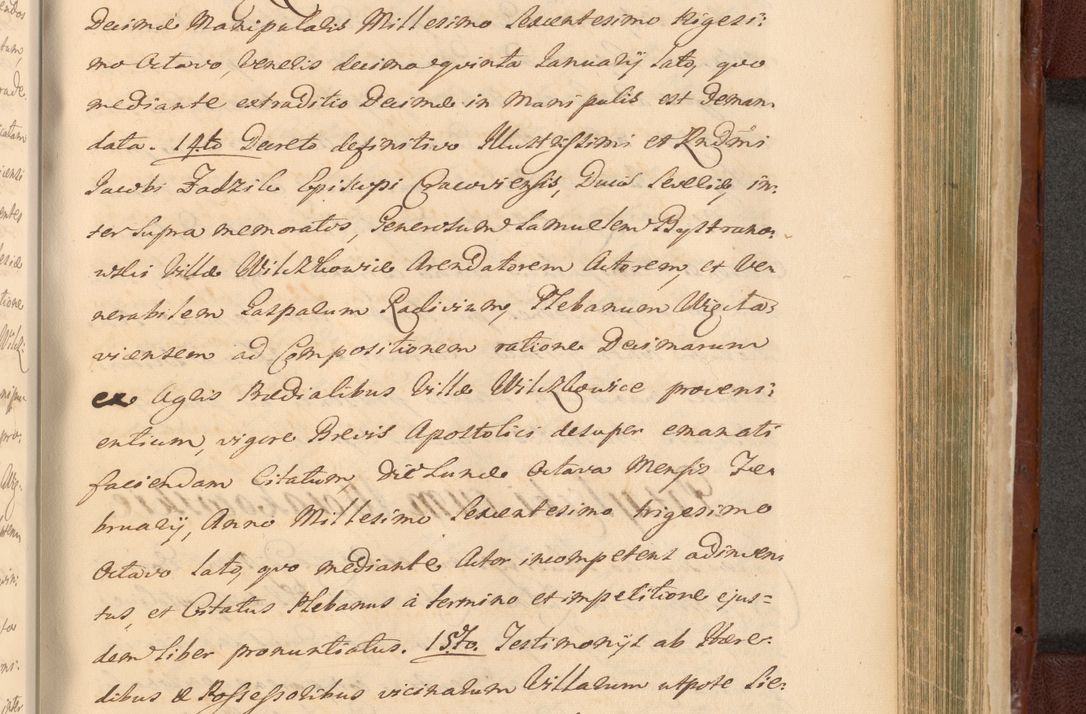 Decimæ Manipularis Millesimo Sexentesimo trigesi:
mo Octavo, Veneris decima quinta Januarij lato, quo
mediante extraditio Decimæ in Manipulis est deman
data. 14to Decreto definitivo Illustrissimi et Rndmi
Jacobi Zadzik Episcopi Cracoviensis, Ducis Severiæ, in:
ter supra memoratos, Generosum Samuelem Bystrano:
wski Villæ Wilczkowice Arendatorem Actorem, et Ve
nerabilem Casparum Radivium, Plebanum
viensem ad Compositionem ratione Decimarum
ex Agris Prædialibus Villæ Wilczkowice proveni:
entium, vigore Brevis Apostolici desuper emanati
faciendam Citatum die Lunæ Octava Mensis Fe
bruarij, Anno Millesimo Sexentesimo trigesimo
Octavo lato, quo mediante Actor incompetens adinven
tus, et Citatus Plebanus à termino et impetitione ejus=
dem liber pronuntiatus. 15to. Testimonijs ab Hære:
dibus & Possessoribus vicinarum Villarum utpote Sie: